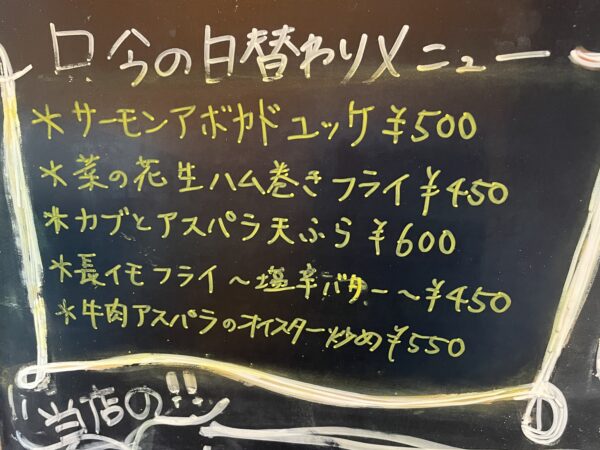 只今の日替わりメニュー
*サーモンアボカドユッケ ¥500
*菜の花生ハム巻きフライ ¥450
*カブとアスパラ天ぷら ¥600
*長イモフライ～塩辛バター～¥450
*牛肉アスパラのオイスター炒め¥550
当店の!!